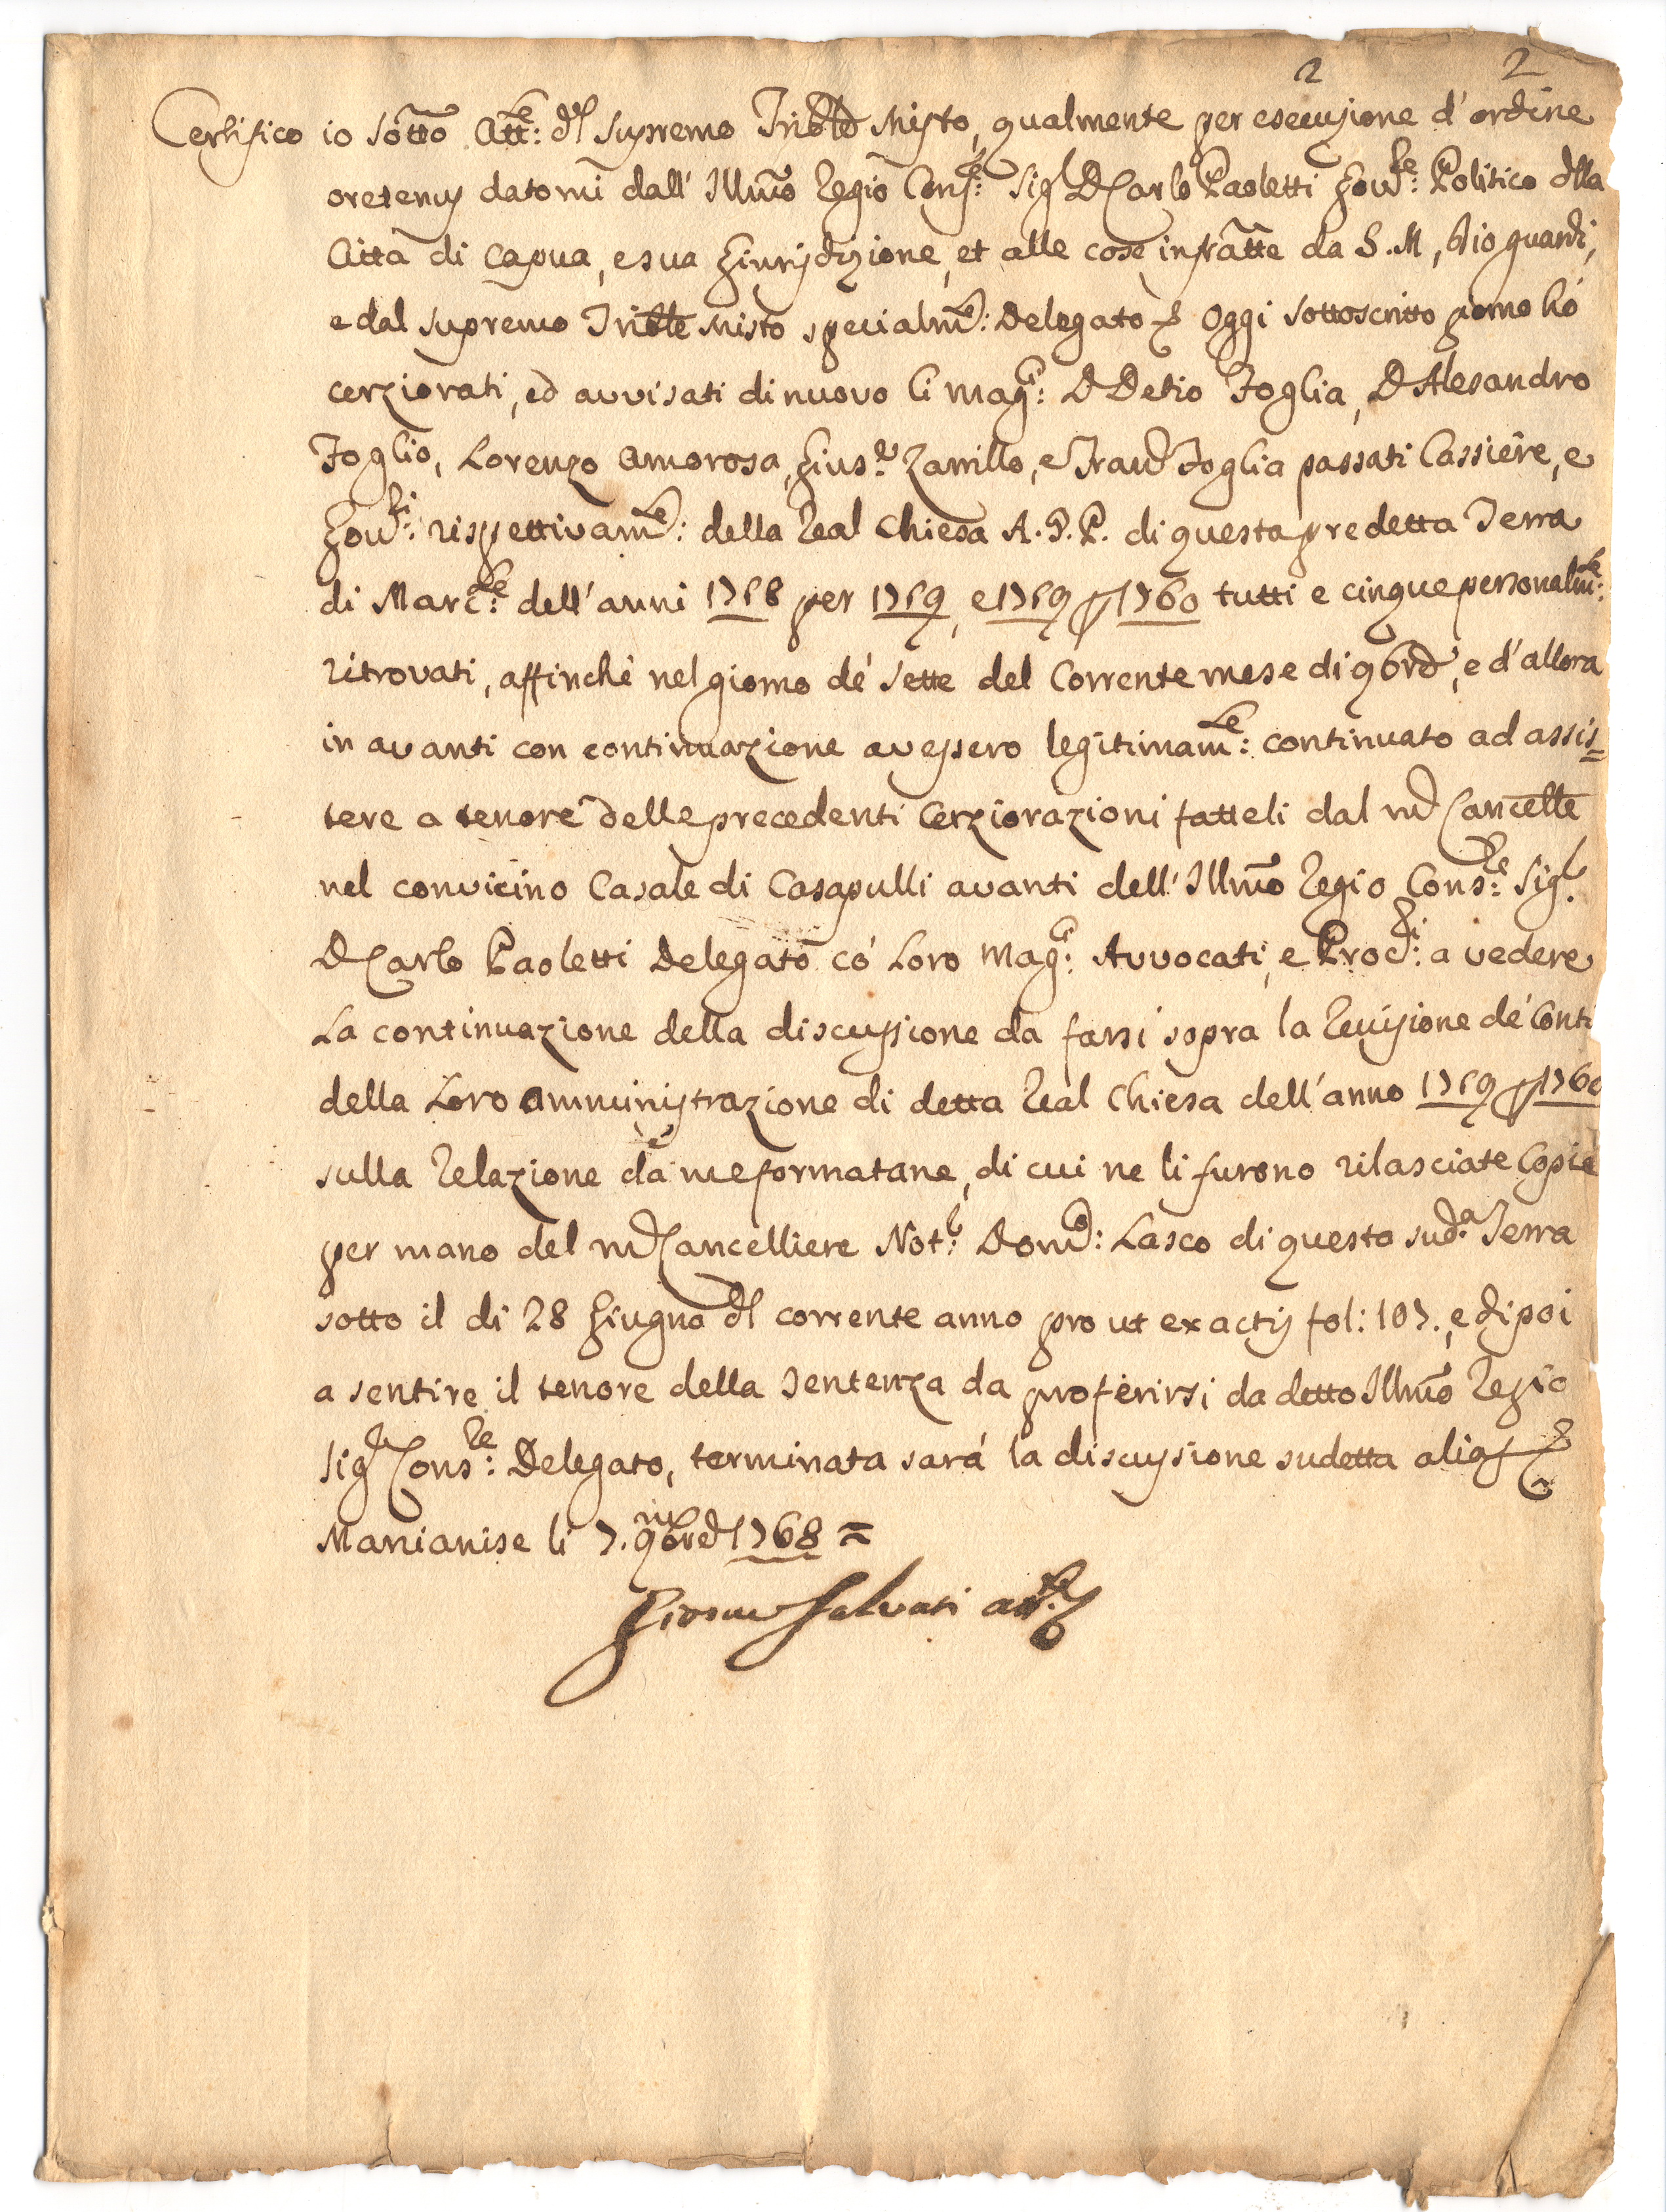 2 2
Certifico io sotto Att.te: del Supremo Trible Misto, qualmente per esecuzione d'ordine
oretenus datomi dall' Illmo Regio Cons.re: Sigr D Carlo Paoletti Gov.re: Politico della
Città di Capua, e sua Giurisdizione, et alle cose infratte da S.M, Dio guardi,
e dal Supremo Trible Misto specialm.te: Delegato Oggi sottoscritto giorno hó
cerziorati, ed avvisati di nuovo li Mag.ci: D Detio Foglia, D Alesandro
Foglio, Lorenzo Amorosa, Gius.e Zarrillo, e Franco Foglia passati Cassiere, e
Gov.ri: rispettivam.te: della Real Chiesa A.G.P. di questa predetta Terra
di Marc.se: dell'anni 1758 per 1759, e 1759 p 1760 tutti e cinque personalm.te:
ritrovati, affinchè nel giorno dé sette del Corrente mese di 9bre, e d'allora
in avanti con continuazione avessero legitimam.te: continuato ad assis=
tere a tenore delle precedenti Cerziorazioni fatteli dal md Cancelle
nel convicino Casale di Casapulli avanti dell' Illmo Regio Cons.re: Sigr.
D Carlo Paoletti Delegato có Loro Mag.ci: Avvocati, e Proc.ri: a vedere
La continuazione della discussione da farsi sopra la Revisione dé Conti
della Loro Amministrazione di detta Real Chiesa dell'anno 1759 p 1760
sulla Relazione da me formatane, di cui ne li furono rilasciate Copie
per mano del md Cancelliere Not.r: Dom.co: Lasco di questa sud.a Terra
sotto il di 28 Giugno del corrente anno prout ex actis fol: 107., e dipoi
a sentire il tenore della Sentenza da proferirsi da detto Illmo Regio
Sigr Cons.re: Delegato, terminata sará la discussione sudetta alias
Marianise li 7. 9bre 1768 =
Giosue Salvati att.te